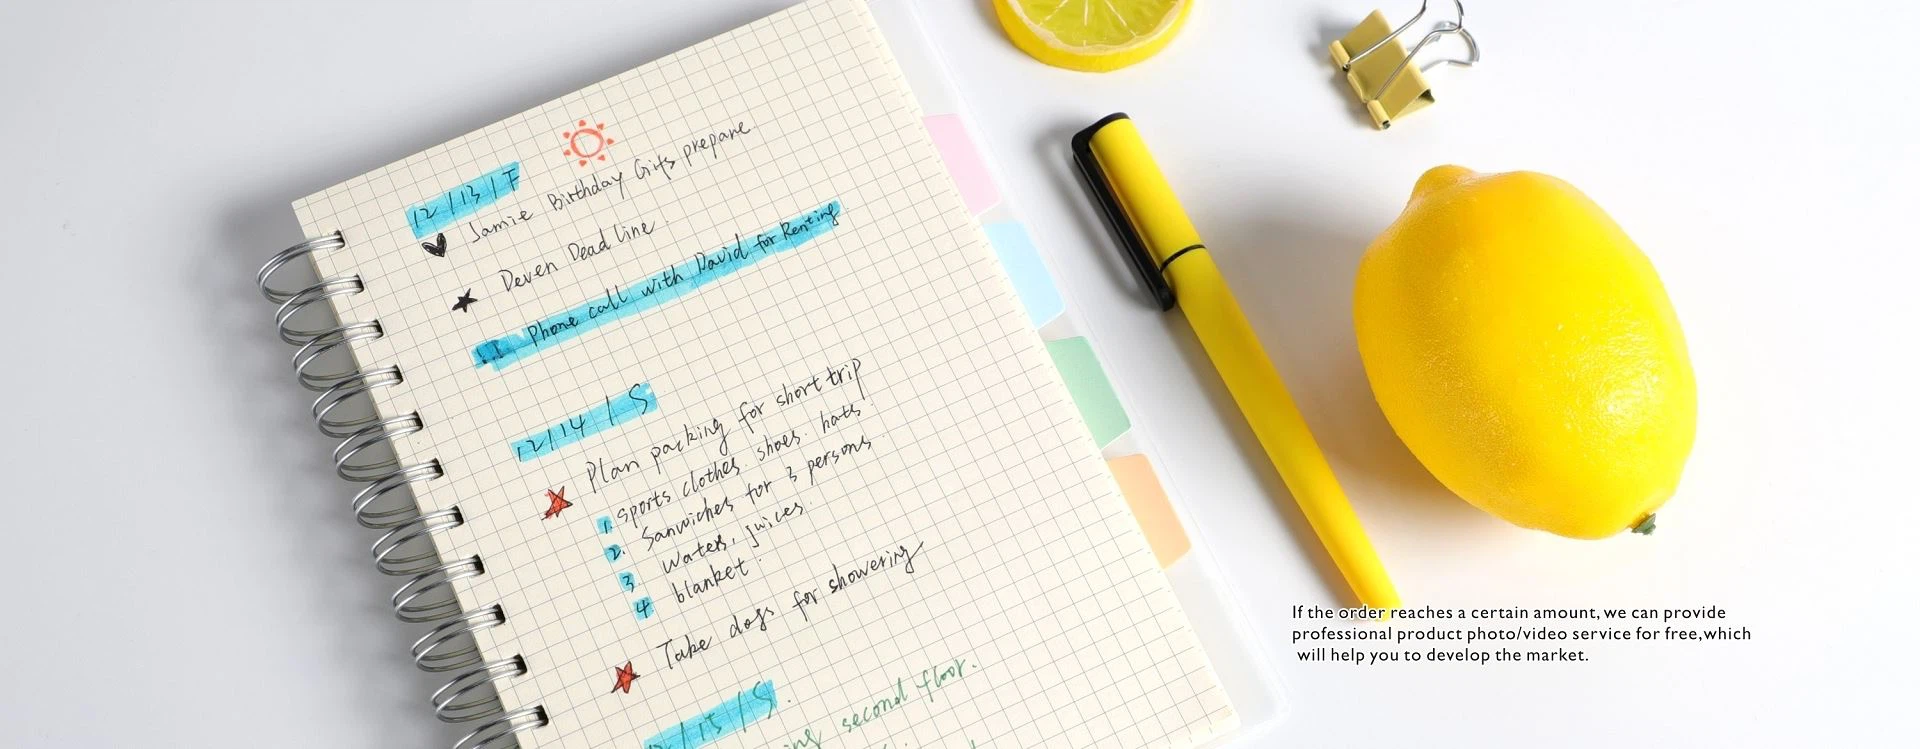 12/13/F
Jamie Birthday Gifts prepare
Deven Dead line.
Phone call with David for Renting
12/14/S
Plan packing for short trip
1. sports clothes. shoes. hats.
2. Sanwiches for 3 persons.
3 waters, juices.
4 blanket.
Take dogs for showering
/15/S.
second floor.
If the order reaches a certain amount, we can provide
professional product photo/video service for free,which
will help you to develop the market.